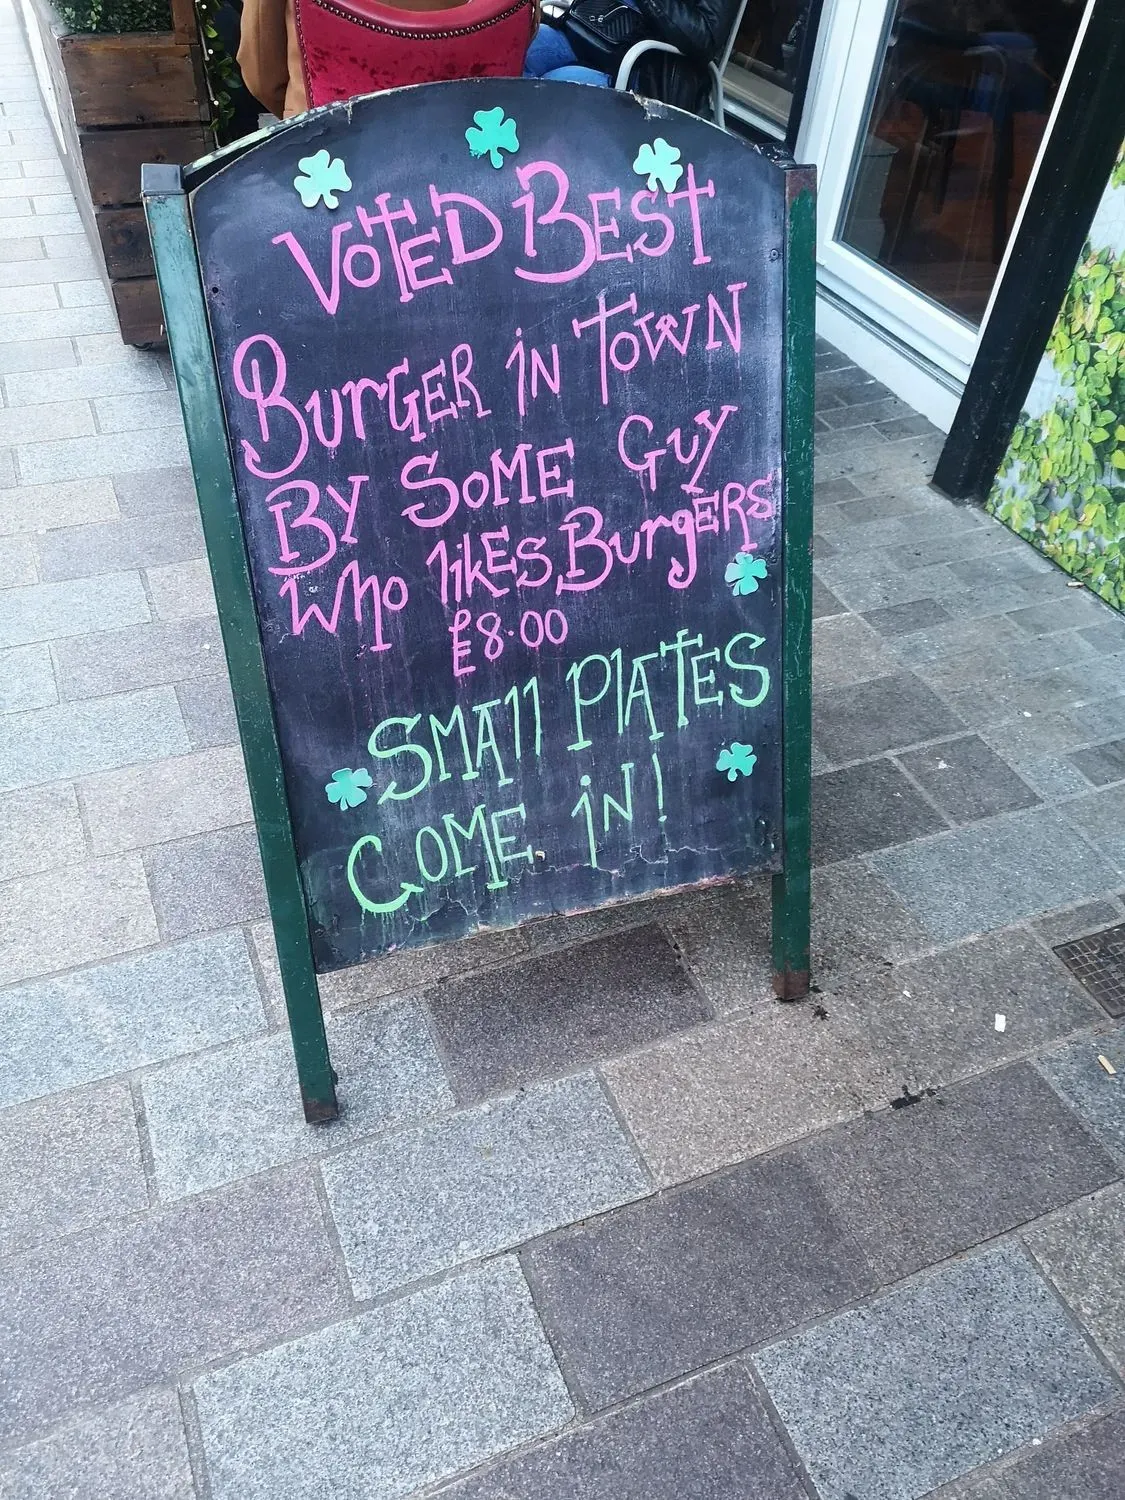 VOTED BEST
BURGER IN TOWN
BY SOME GUY
WHO liKES BURgERS
£8.00
SMAll PlATES
COME iN!